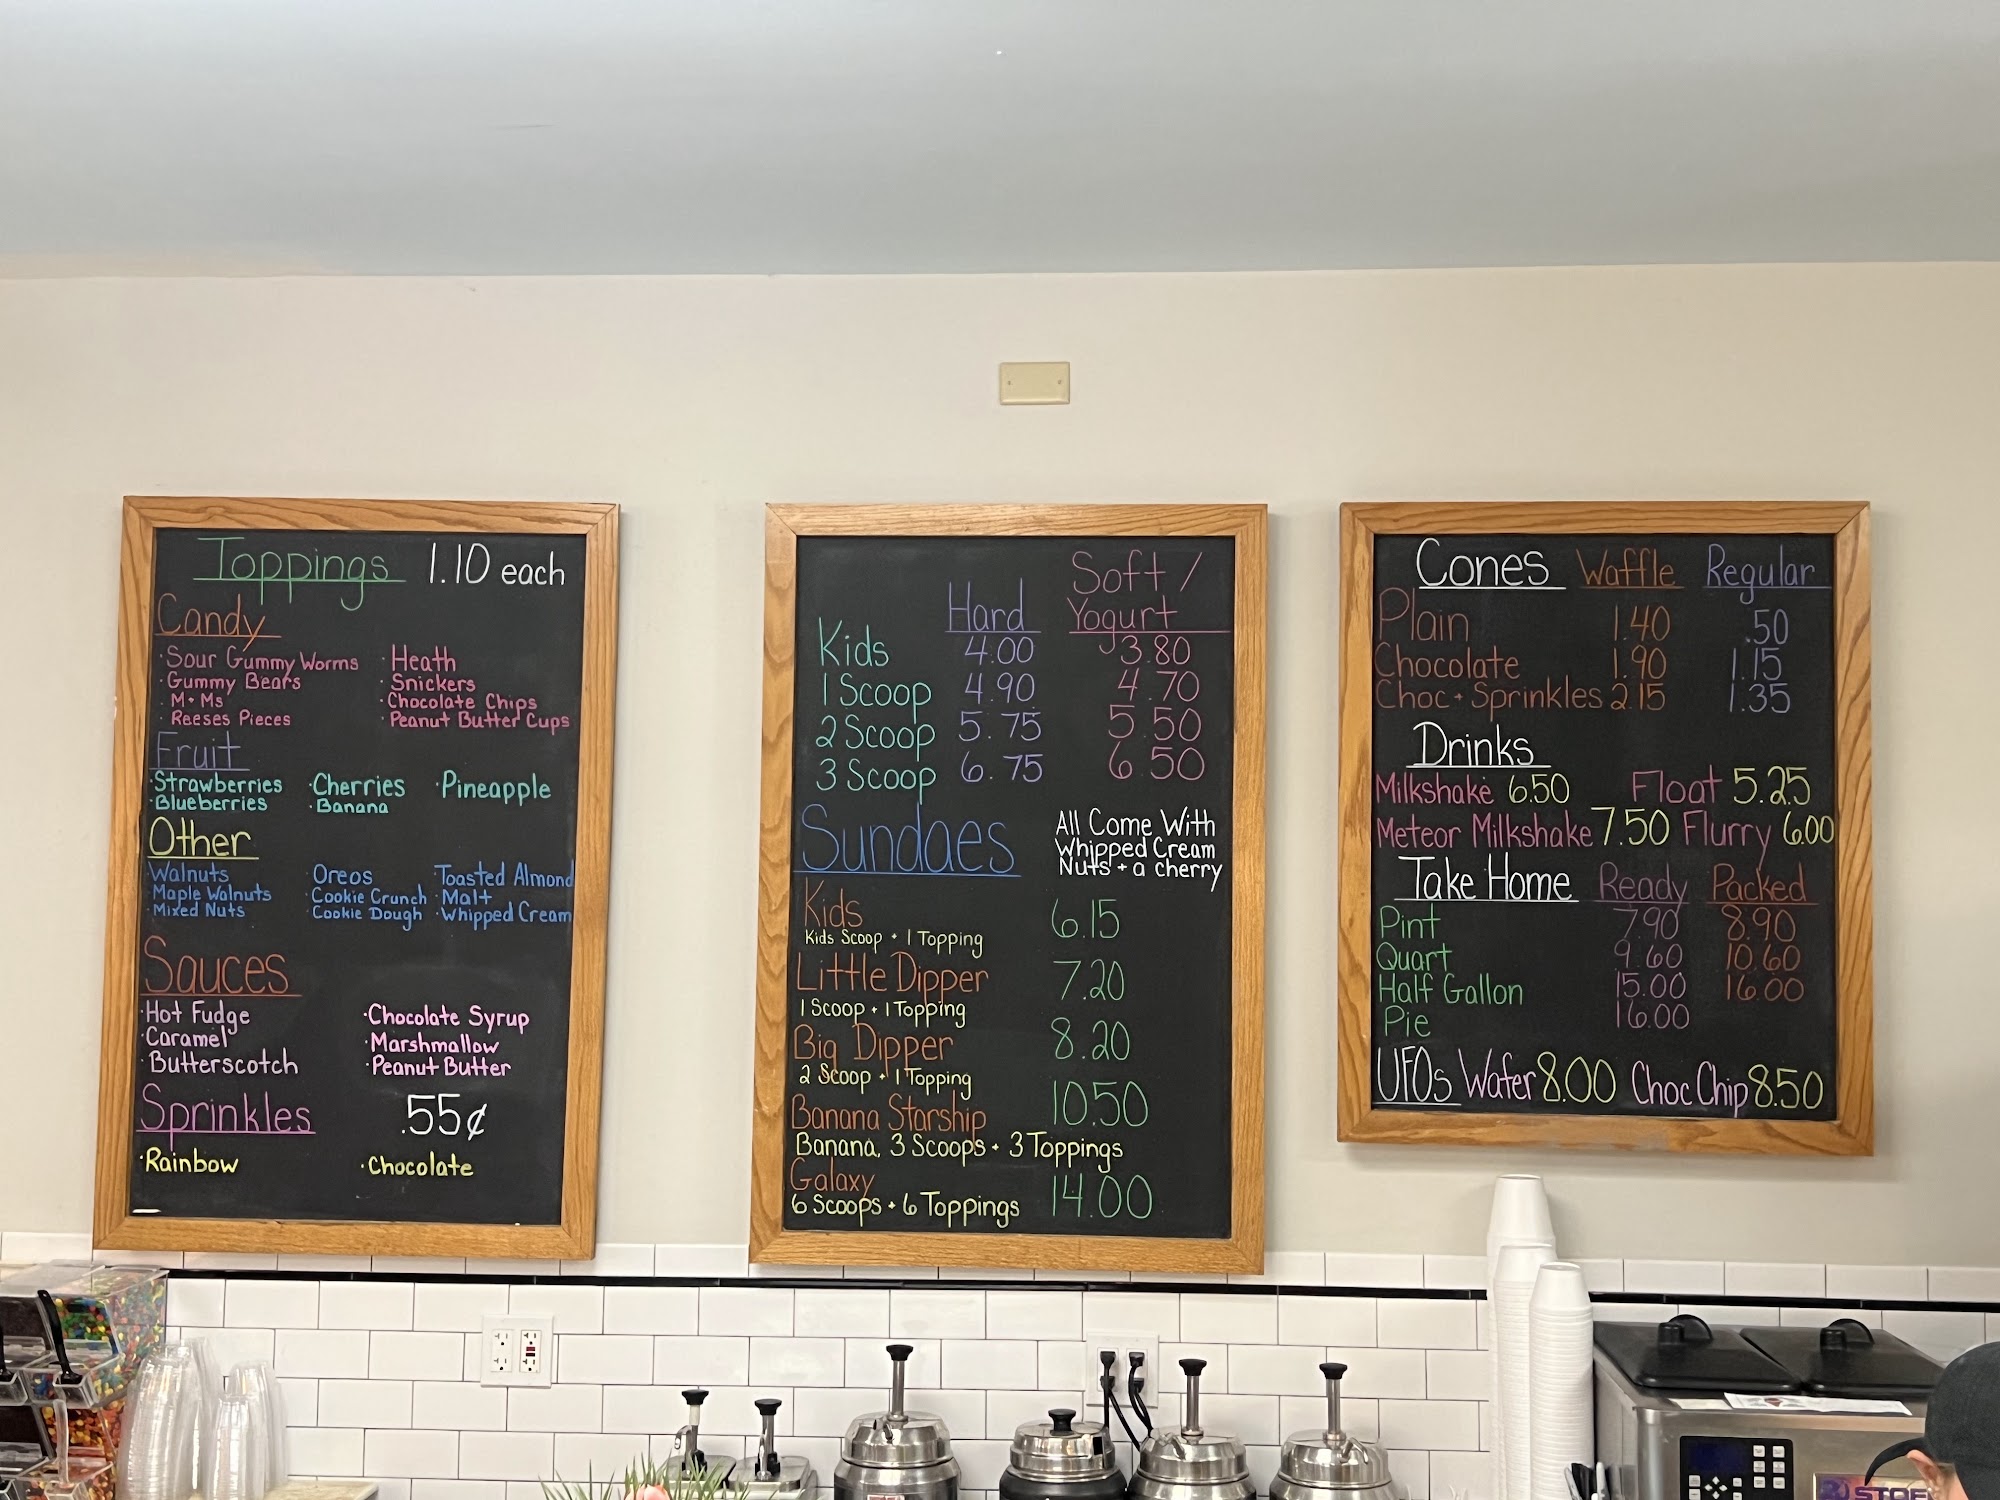 Toppings 1.10 each
Candy
· Sour Gummy Worms · Heath
· Gummy Bears · Snickers
· M+Ms · Chocolate Chips
· Reeses Pieces · Peanut Butter Cups
Fruit
· Strawberries · Cherries · Pineapple
· Blueberries · Banana
Other
· Walnuts · Oreos · Toasted Almond
· Maple Walnuts · Cookie Crunch · Malt
· Mixed Nuts · Cookie Dough · Whipped Cream
Sauces
· Hot Fudge · Chocolate Syrup
· Caramel · Marshmallow
· Butterscotch · Peanut Butter
Sprinkles .55¢
· Rainbow · Chocolate
Hard Soft / Yogurt
Kids 4.00 3.80
1 Scoop 4.90 4.70
2 Scoop 5.75 5.50
3 Scoop 6.75 6.50
Sundaes
All Come With
Whipped Cream
Nuts + a cherry
Kids 6.15
Kids Scoop + 1 Topping
Little Dipper 7.20
1 Scoop + 1 Topping
Big Dipper 8.20
2 Scoop + 1 Topping
Banana Starship 10.50
Banana, 3 Scoops + 3 Toppings
Galaxy 14.00
6 Scoops + 6 Toppings
Cones Waffle Regular
Plain 1.40 .50
Chocolate 1.90 1.15
Choc + Sprinkles 2.15 1.35
Drinks
Milkshake 6.50 Float 5.25
Meteor Milkshake 7.50 Flurry 6.00
Take Home Ready Packed
Pint 7.90 8.90
Quart 9.60 10.60
Half Gallon 15.00 16.00
Pie 16.00
UFOs Wafer 8.00 Choc Chip 8.50